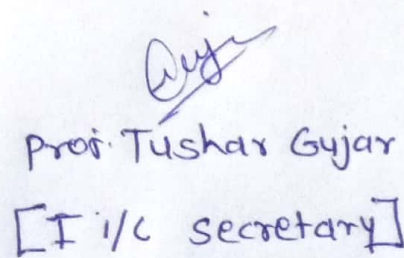 Prof. Tushar Gujar
[I i/c secretary]